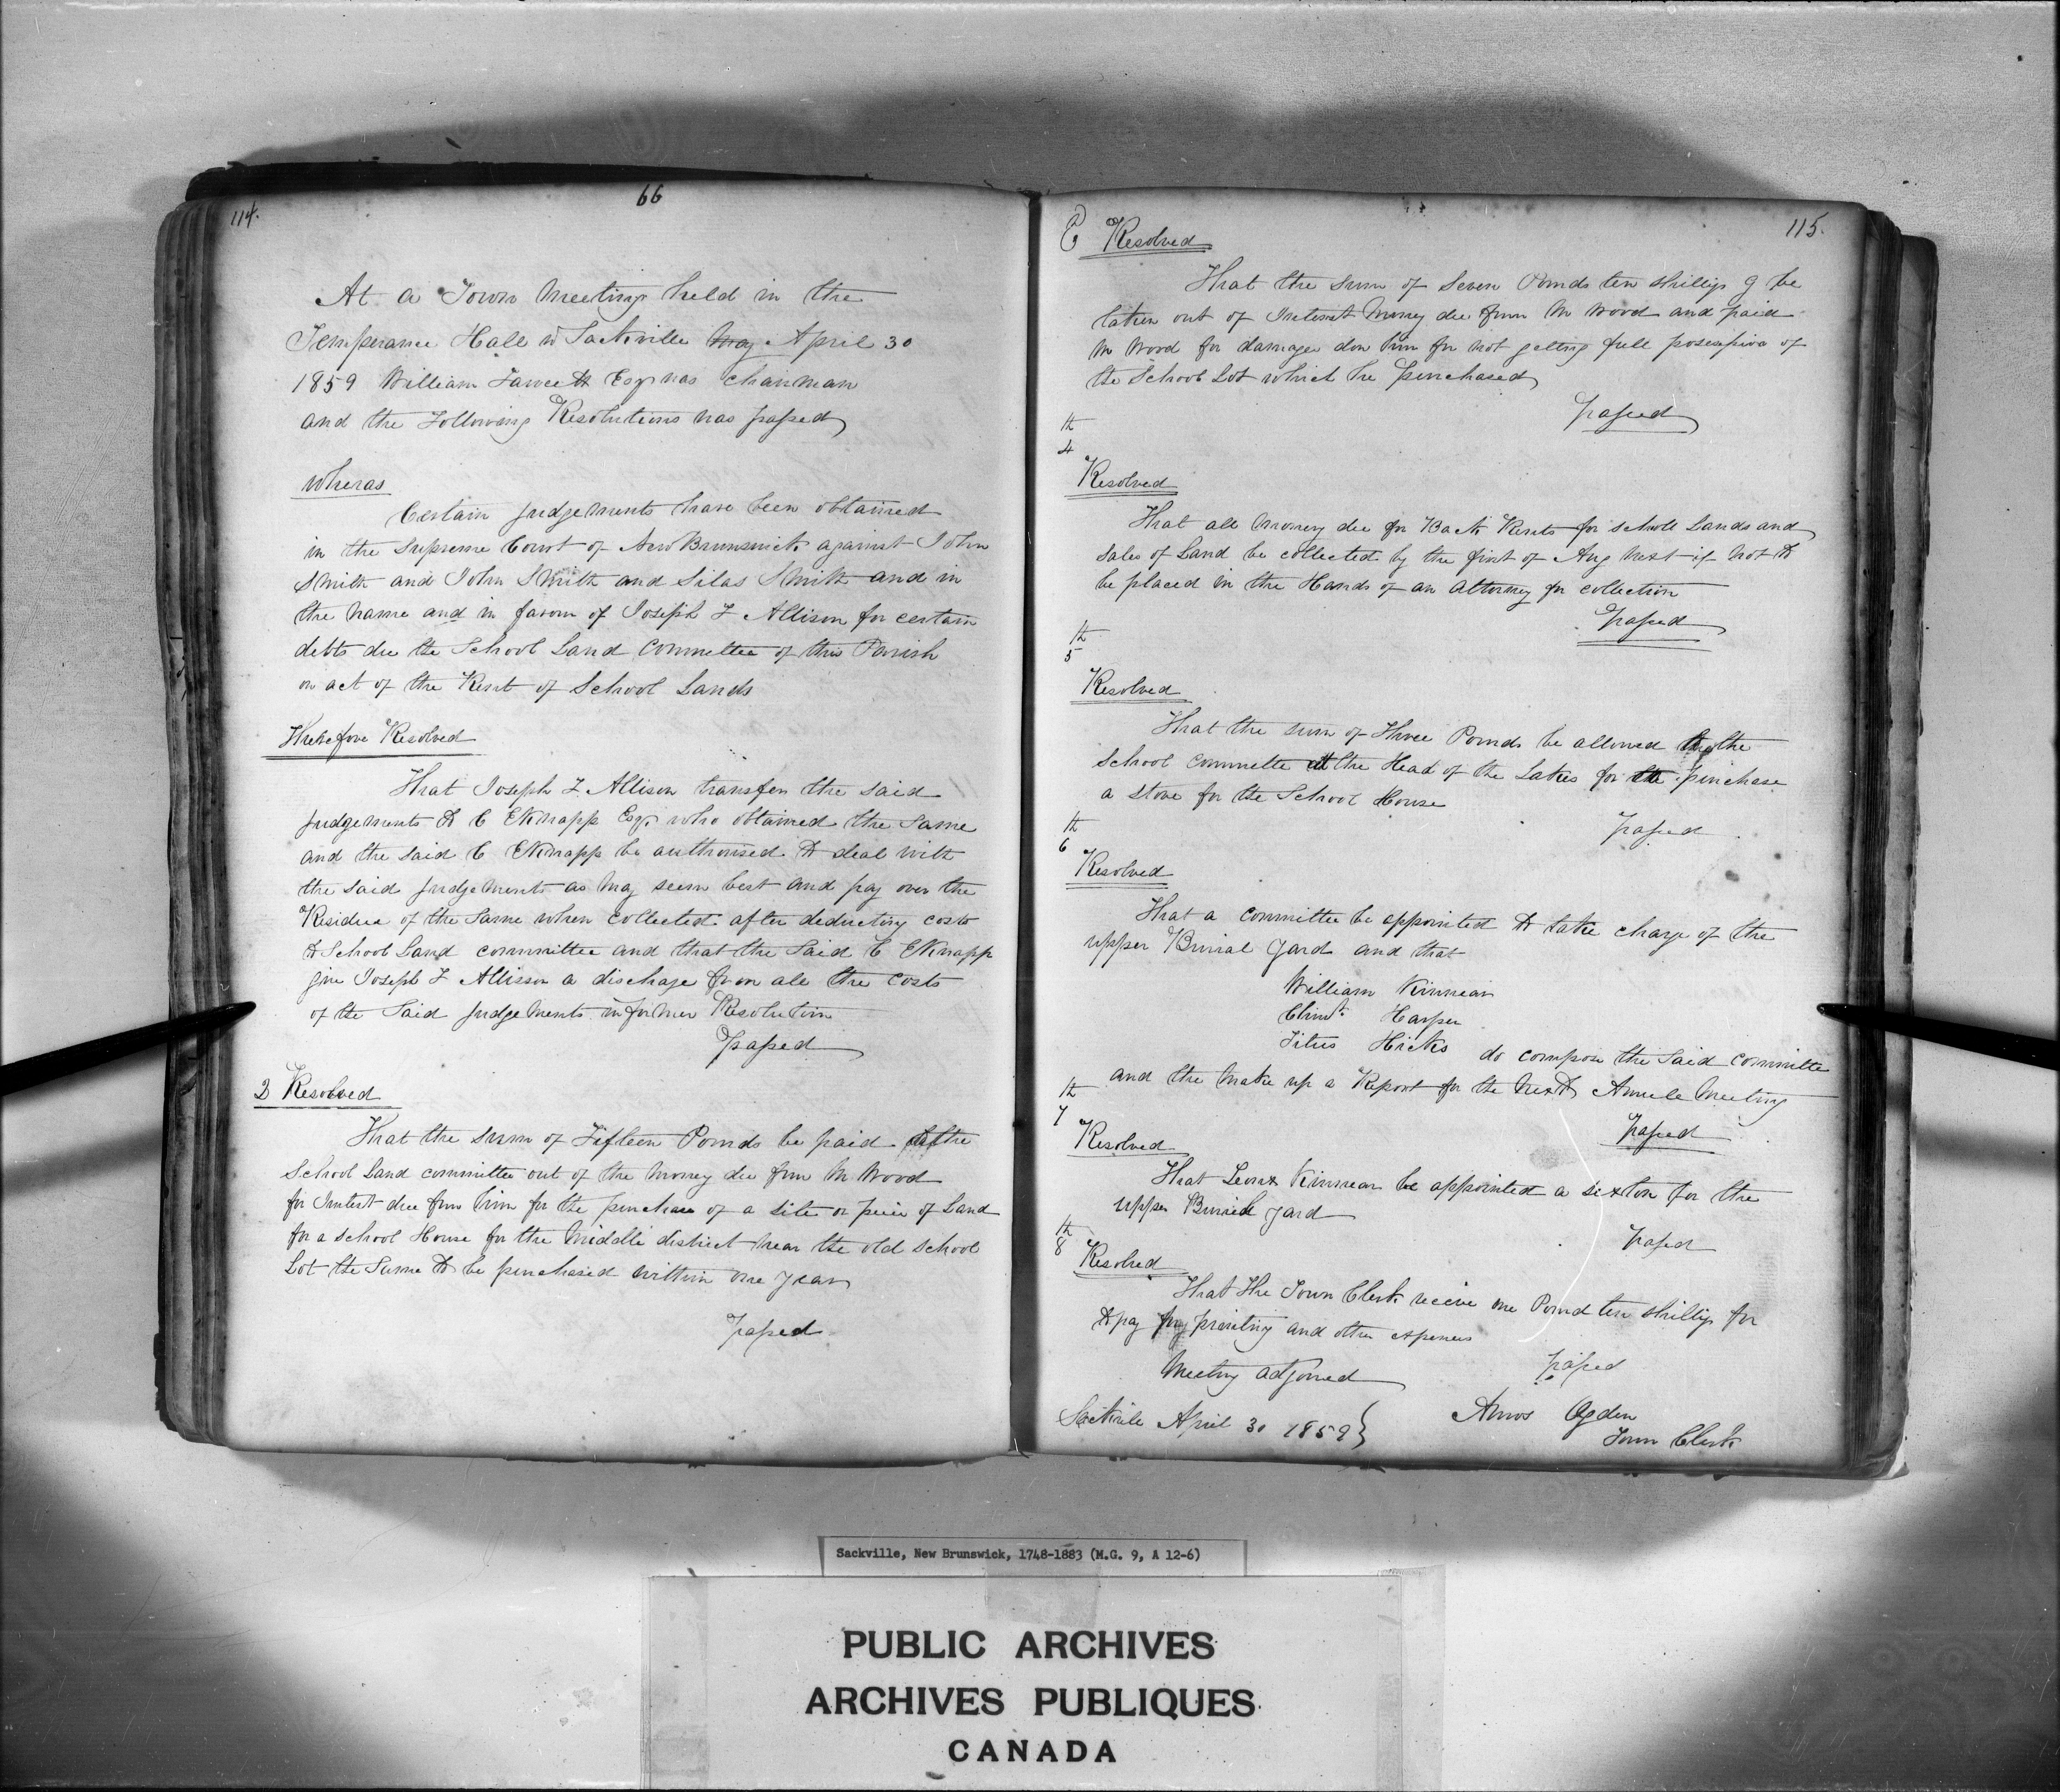 114.
66
At a Town Meeting held in the
Temperance Hall in Sackville May April 30
1859 William Fawcett Esqr was chairman
and the Following Resolutions was passed
Wheras
Certain judgements have been obtained
in the Supreme Court of New Brunswick against John
Smith and John Smith and Silas Smith and in
the name and in favour of Joseph F Allison for certain
debts due the School Land Committee of this Parish
on act of the Rent of School Lands
Therefore Resolved
That Joseph F Allison transfer the said
judgements to C E Knapp Esqr who obtained the same
and the said C E Knapp be authorised to deal with
the said judgements as may seem best and pay over the
Residue of the same when collected after deducting costs
to School Land committee and that the said C E Knapp
give Joseph F Allisson a discharge from all the costs
of the Said judgements in former Resolution
passed
2 Resolved
That the sum of Fifteen Pounds be paid to the
School Land committee out of the money due from M Wood
for Interest due from him for the purchase of a site or peice of Land
for a school House for the Middle district near the old school
Lot the Same to be purchased within one year
passed
115.
Resolved
That the sum of Seven Pounds ten shillings be
taken out of Interest Money due from M Wood and paid
M Wood for damage don him for not getting full possession of
the School Lot which he purchased
passed
th
4
Resolved
That all money due for Back Rents for scholl Lands and
sales of Land be collected by the first of Aug next if not to
be placed in the Hands of an attorney for collection
passed
th
5
Resolved
That the sum of Three Pounds be allowed the
School committe at the Head of the Lakes for the purchase
a stove for the School House
passed
th
6
Resolved
That a committee be appointed to take charge of the
upper Burial Yard and that
William Kinnear
Harper
Titus Hicks do compose the said committe
and the make up a Report for the next Annule Meeting
passed
th
7
Resolved
That Kinnear be appointed a sexton for the
upper Buriel yard
passed
th
8
Resolved
That the Town Clerk receive one Pound ten shillings for
to pay for printing and other expences
passed
Meeting adjorned
Sackvile April 30 1859 }
Amos Ogden
Town Clerk
Sackville, New Brunswick, 1748-1883 (M.G. 9, A 12-6)
PUBLIC ARCHIVES
ARCHIVES PUBLIQUES
CANADA